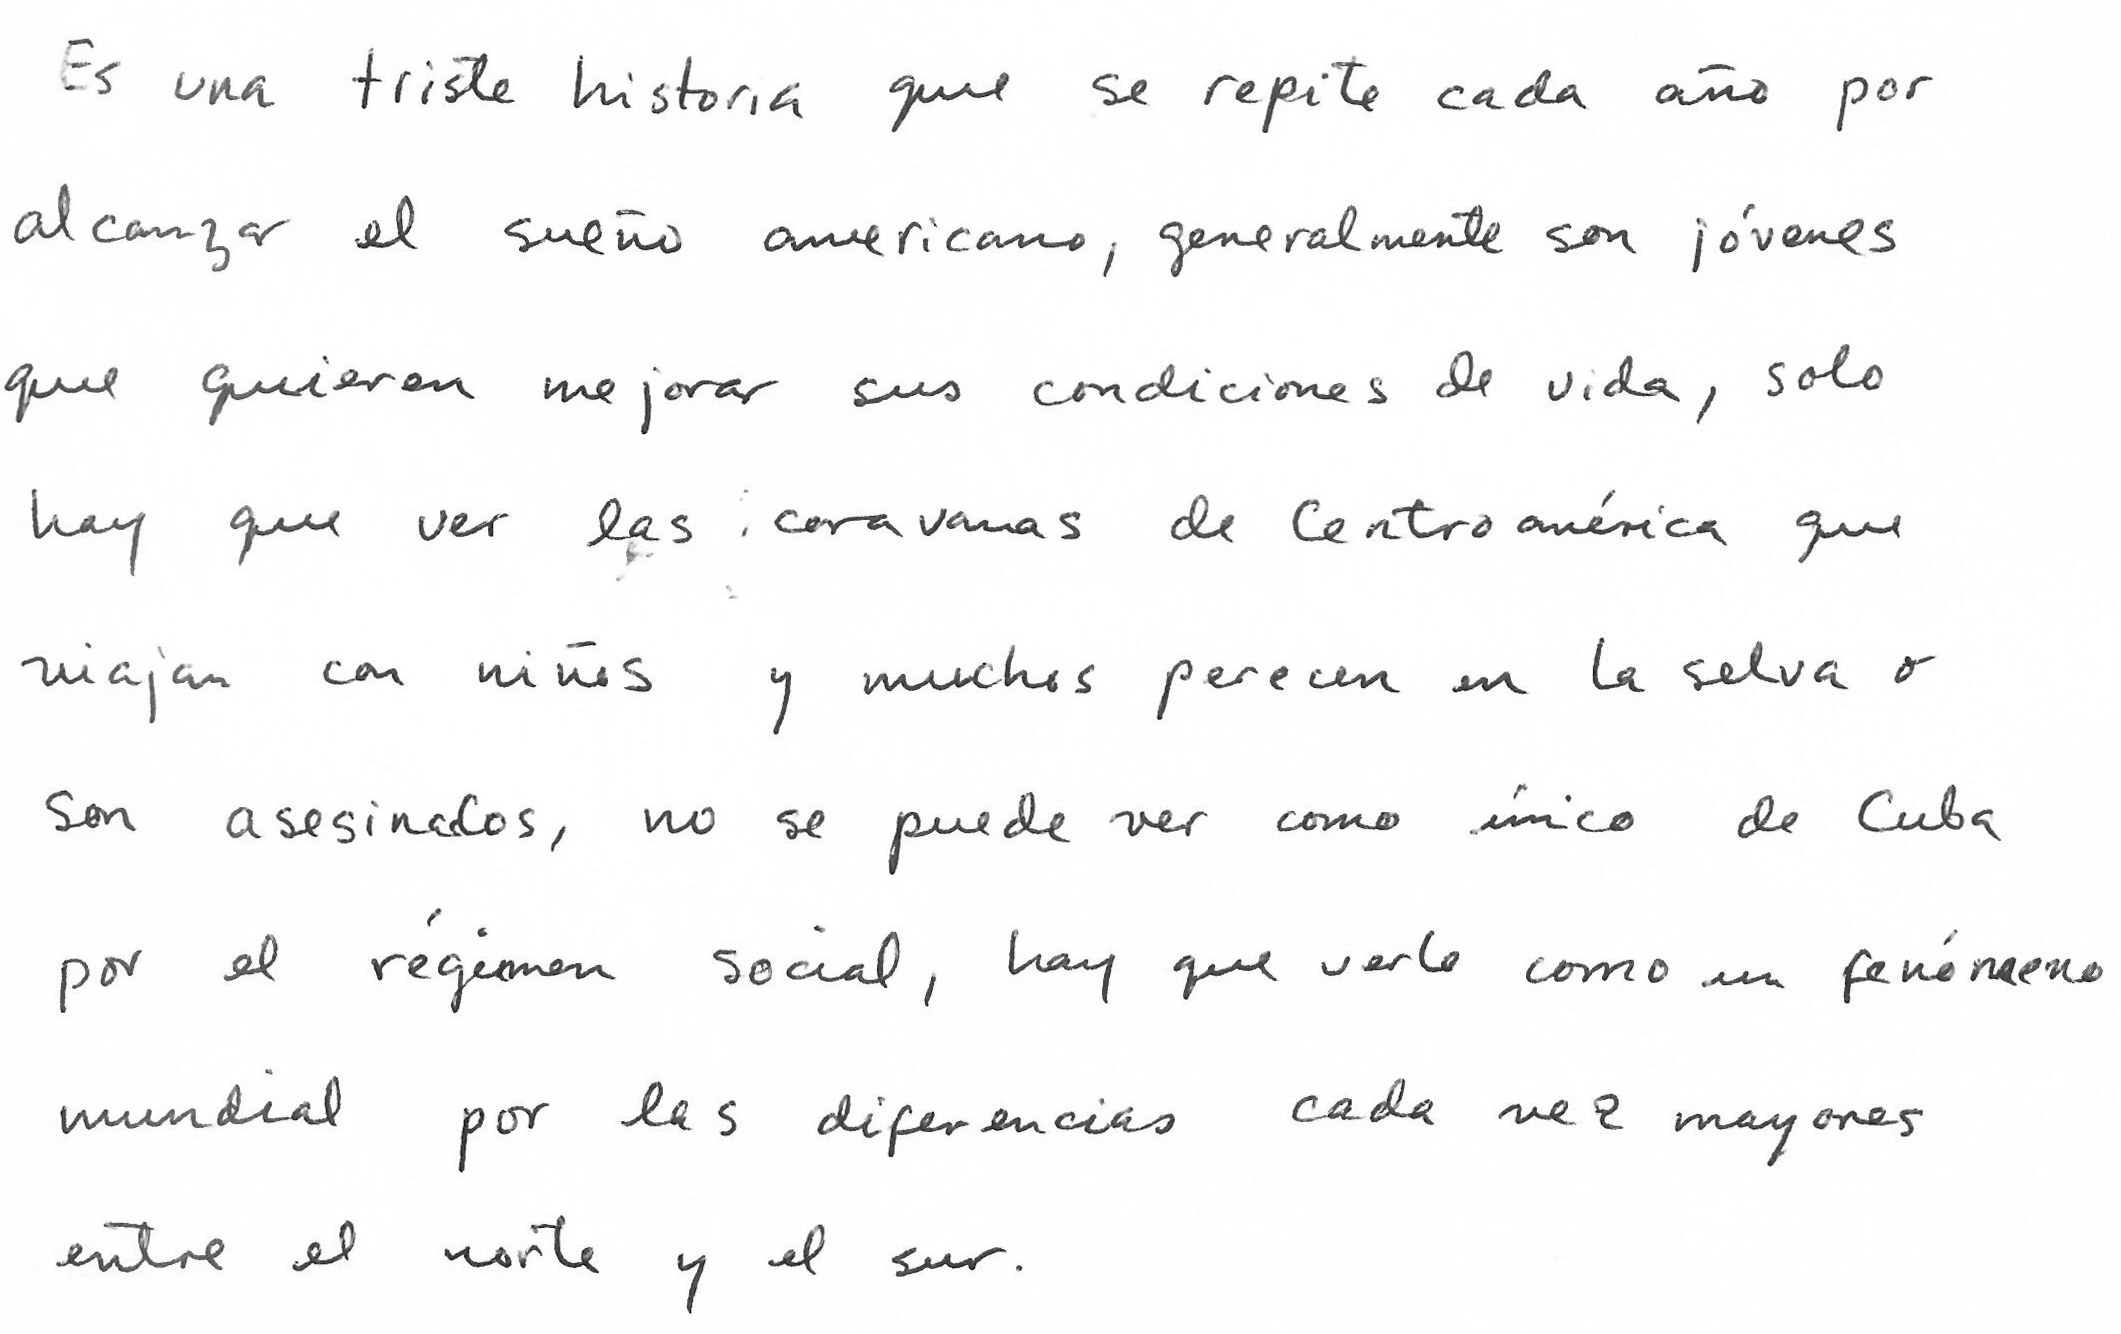 Es una triste historia que se repite cada año por
alcanzar el sueño americano, generalmente son jóvenes
que quieren mejorar sus condiciones de vida, solo
hay que ver las caravanas de Centroamérica que
viajan con niños y muchos perecen en la selva o
son asesinados, no se puede ver como único de Cuba
por el régimen social, hay que verlo como un fenómeno
mundial por las diferencias cada vez mayores
entre el norte y el sur.